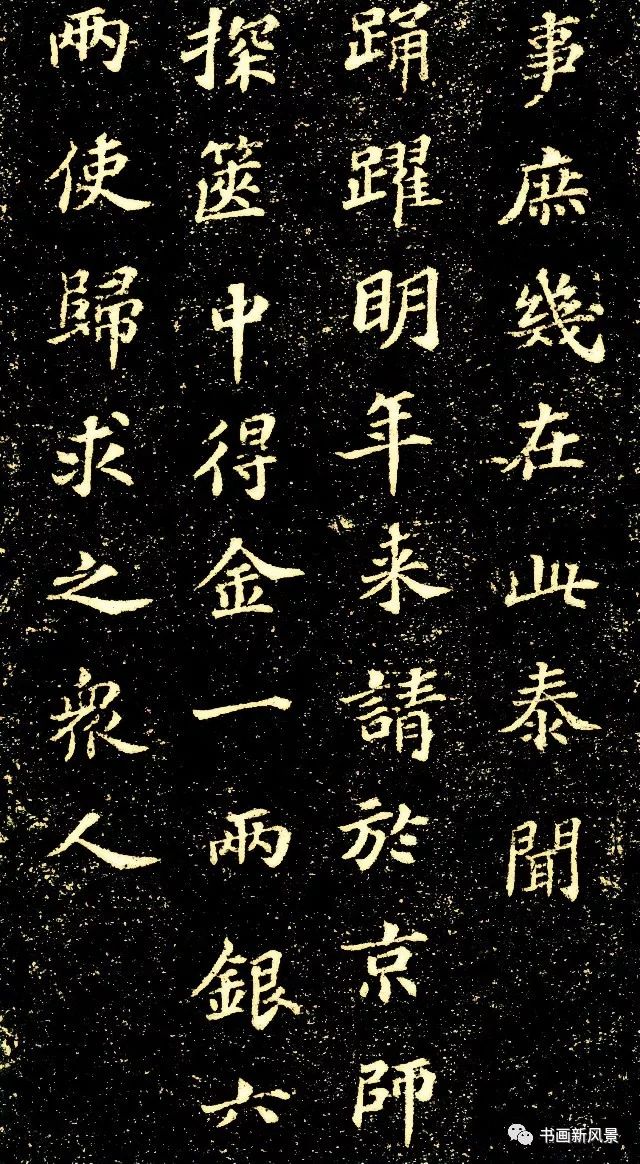 事庶幾在此泰聞
踊躍明年来請於京師
探篋中得金一兩銀六
兩使歸求之衆人
书画新风景